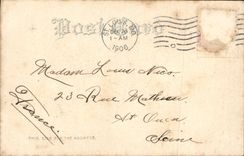 Post Card
1 - AM
1906
Madam Louis Nico.
23 Rue Mathieu
St Ouen
Seine
France.
THIS SIDE FOR THE ADDRESS